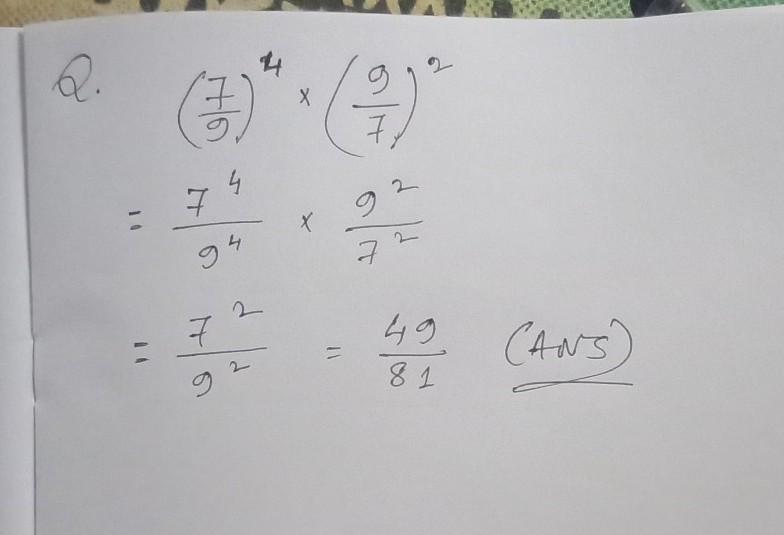 Q. (7/9)⁴ × (9/7)²
= 7⁴/9⁴ × 9²/7²
= 7²/9² = 49/81 (ANS)